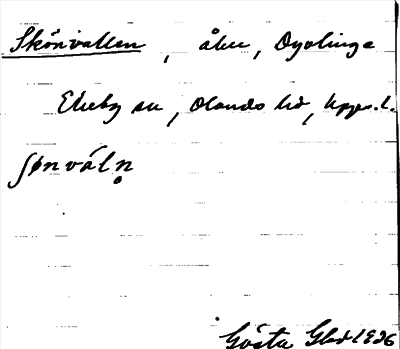 Skönvallen, åker, Dyvlinge
Ekeby sn, Olands hd, Upps. l.
ʃönváln̥
Gösta Glad 1926